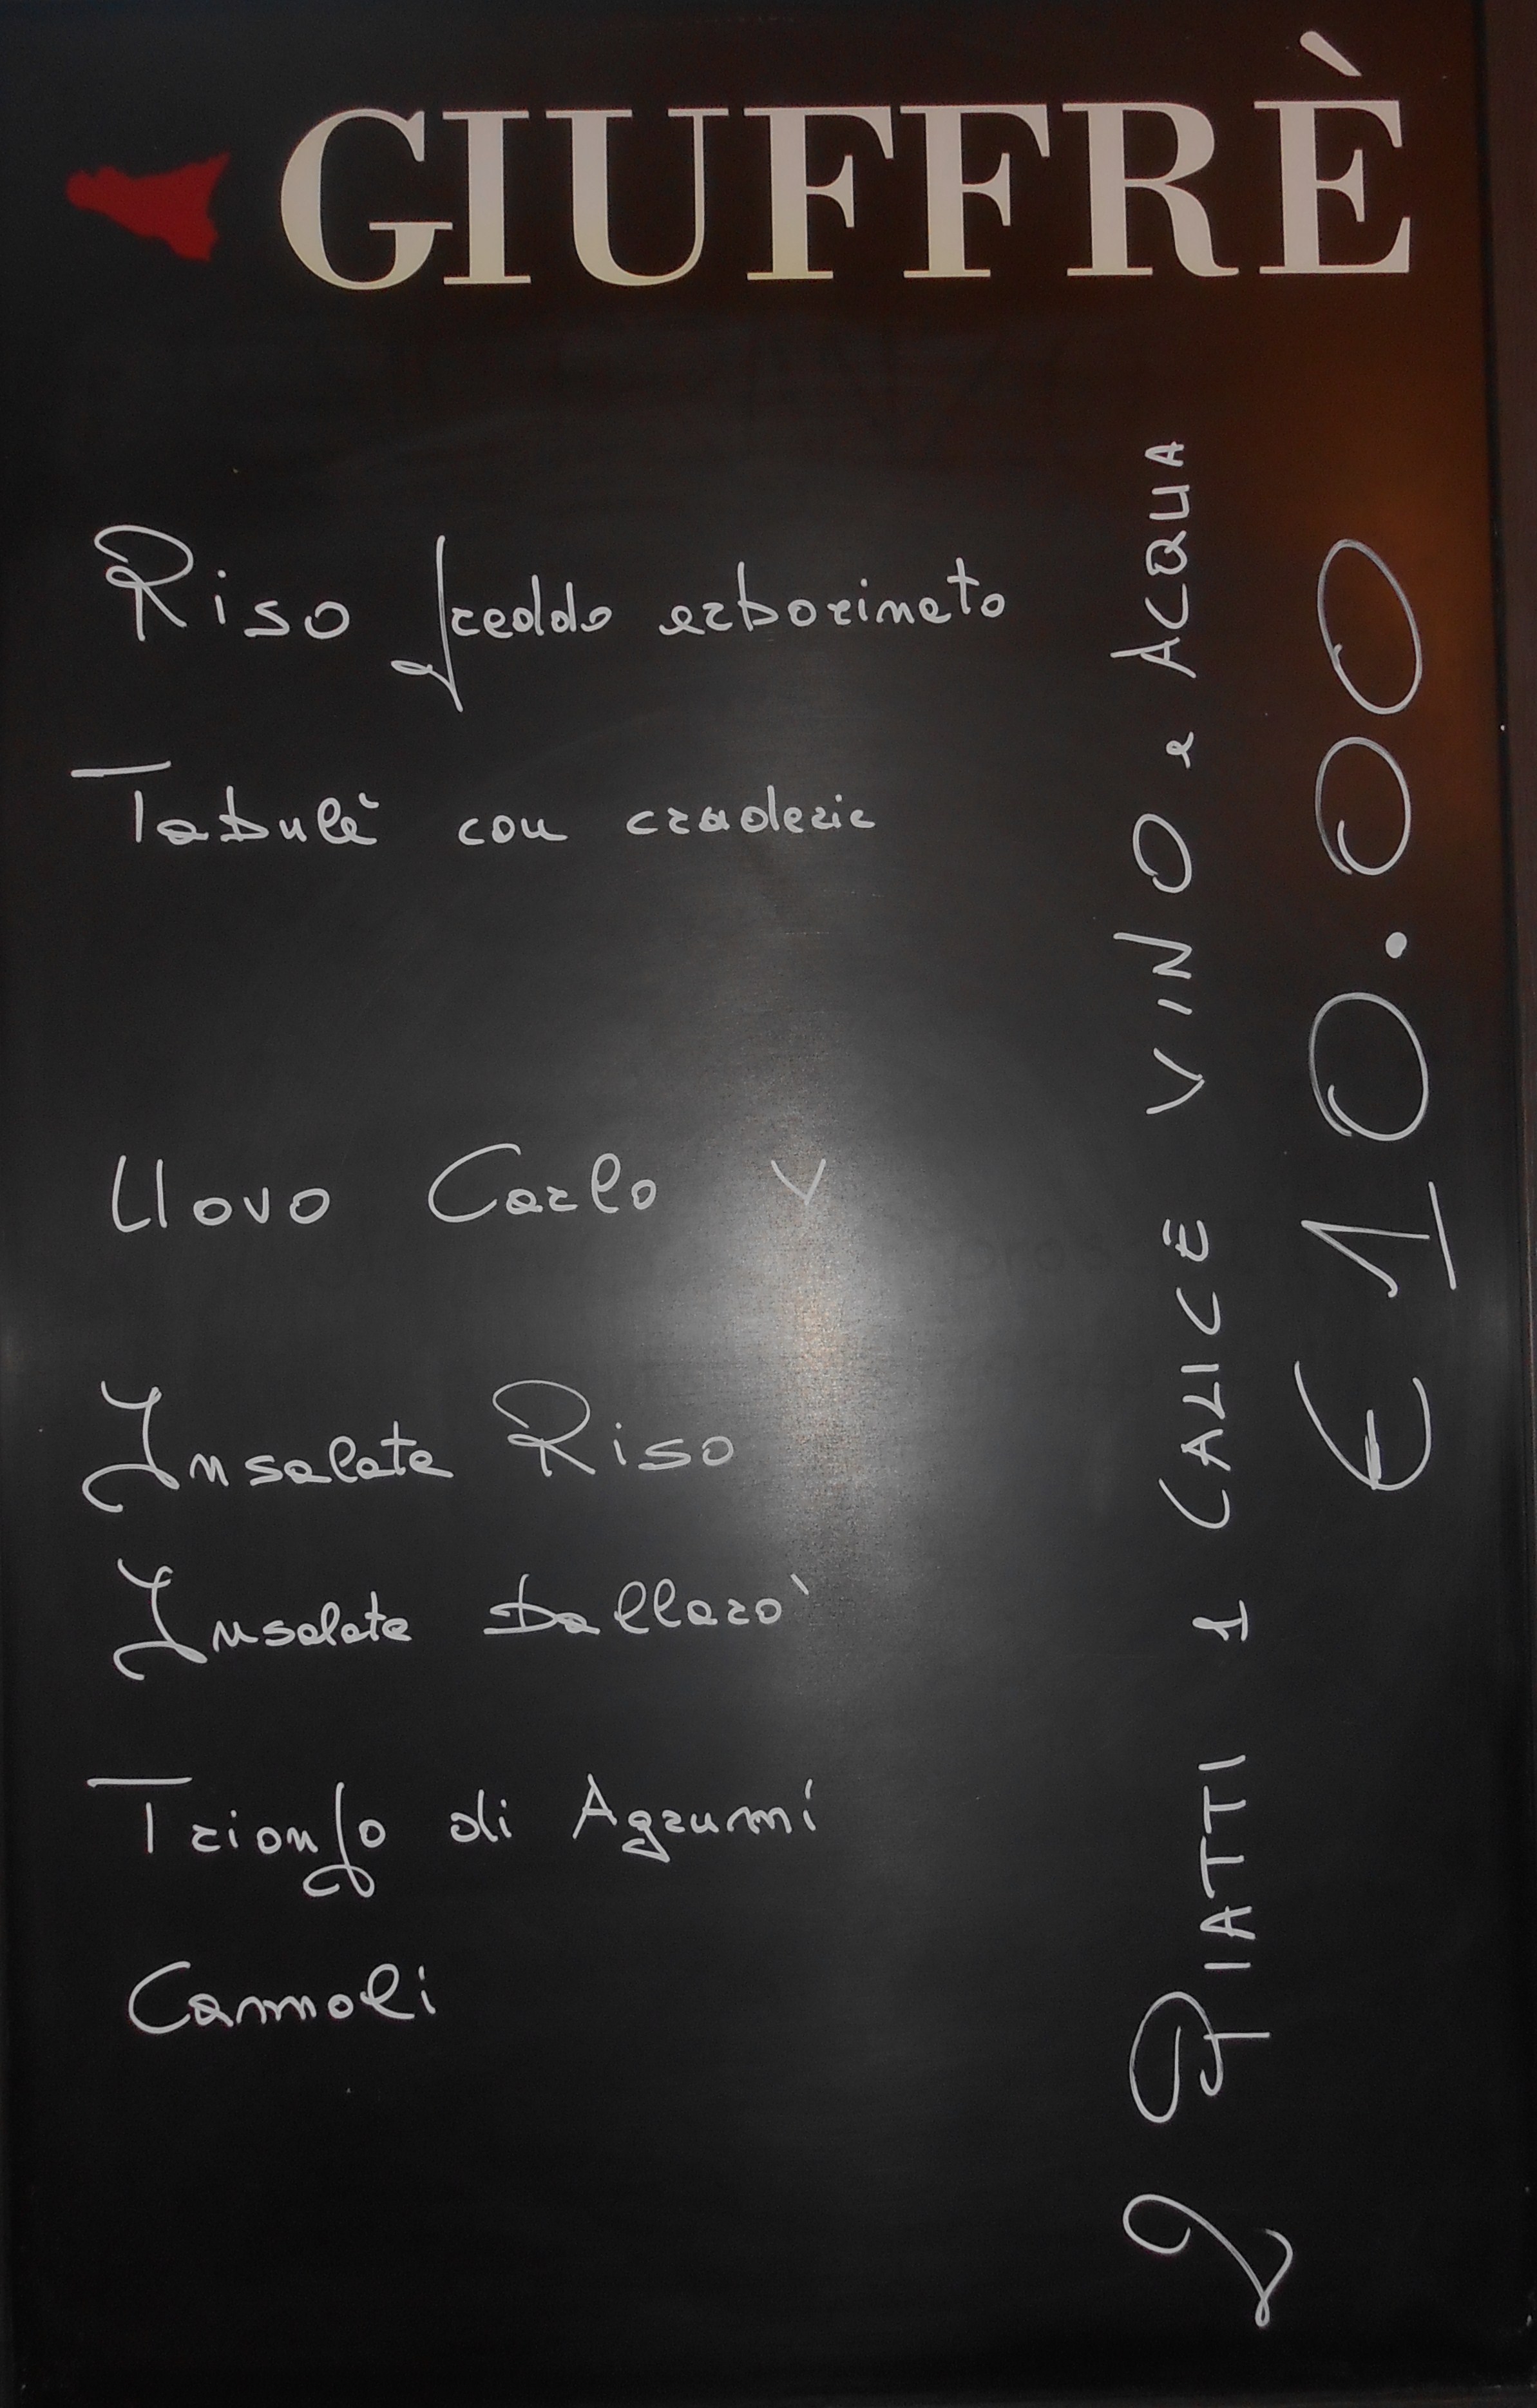 GIUFFRÈ
Riso freddo erborinato
Tabulè con crudezie
Uovo Carlo V
Insalata Riso
Insalata Ballarò
Trionfo di Agrumi
Cannoli
2 PIATTI 1 CALICE VINO e ACQUA
€ 10.00